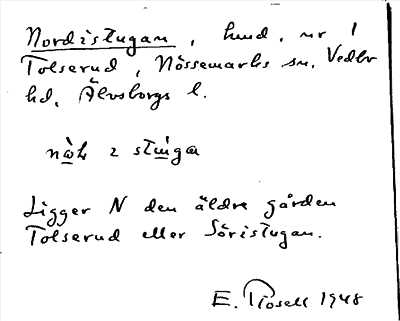 Nordistugan, hmd. nr 1
Tolserud, Nössemarks sn. Vedbo
hd, Älvsborgs l.
nòh 2 stùga
Ligger N den äldre gården
Tolserud eller Söristugan.
E. Rosell 1948